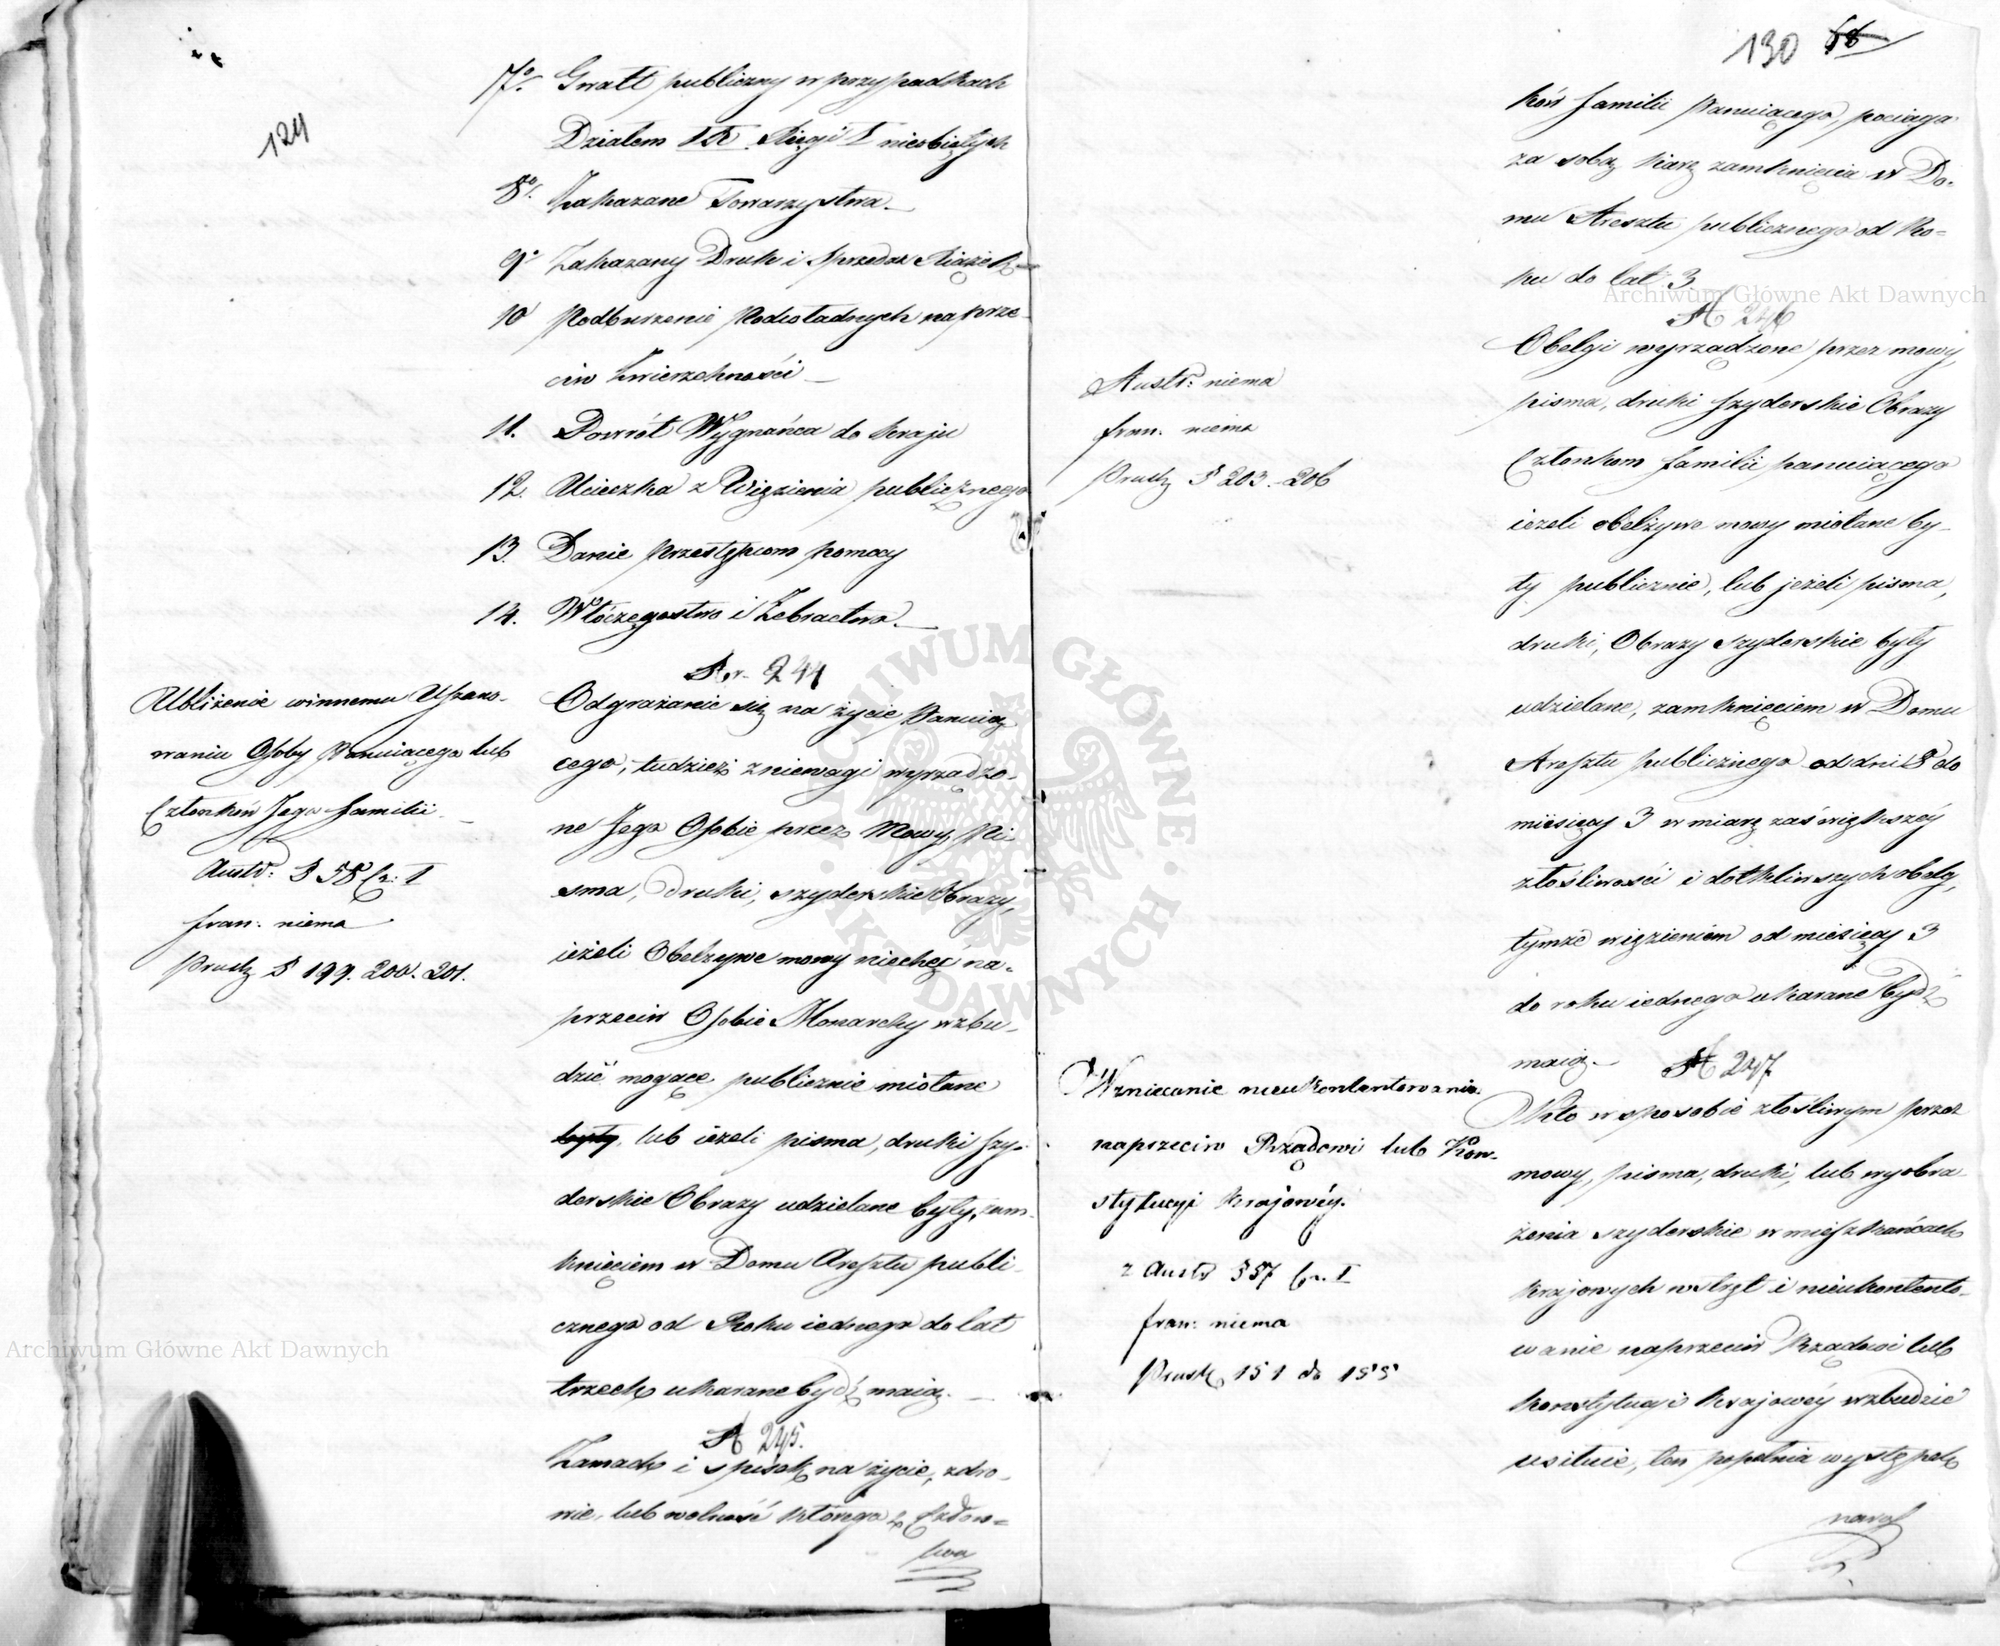 124
7º. Gwałt publiczny w przypadkach
Działem IX Księgi I nieobiętych
8º. Zakazane Towarzystwa.
9º Zakazany Druk i Sprzedaż Książek
10 Podburzenie Podwładnych naprze-
ciw Zwierzchności
11. Powrót Wygnańca do kraju
12. Ucieczka z Więzienia publicznego
13. Danie przestępcom pomocy
14. Włóczęgostwo i Żebractwo.
Ar. 244
Ubliżenie winnemu Uszano-
waniu Osoby Panuiącego lub
Członków Jego familii
Austr: § 58 Cz: I
fran: niema
Prusk § 199. 200. 201.
Odgrażanie się na życie Panuią
cego, tudzież zniewagi wyrządzo-
ne Jego Osobie przez Mowy, Pi
sma, druki, szyderskie Obrazy,
ieżeli Obelżywe mowy niechęć na-
przeciw Osobie Monarchy wzbu-
dzić mogące publicznie miotane
były, lub ieżeli pisma, druki szy-
derskie Obrazy udzielane były, zam-
knięciem w Domu Aresztu publi-
cznego od Roku iednego do lat
trzech ukarane bydź maią.
A 245.
Zamach i spisek na życie, zdro-
wie, lub wolność którego z Człon-
ków
130 58
ków familii Panuiącego, pociąga
za sobą karę zamknięcia w Do-
mu Aresztu publicznego od Ro-
ku do lat 3.
A 246
Austr: niema
fran. niema
Prusk § 203. - 206
Obelgi wyrządzone przez mowy,
pisma, druki szyderskie Obrazy
Członkom familii panuiącego
ieżeli obelżywe mowy miotane by-
ły publicznie, lub jeżeli pisma,
druki, Obrazy szyderskie były
udzielane, zamknięciem w Domu
Aresztu publicznego od dni 8 do
miesięcy 3 w miarę zaś większéy
złośliwości i dotkliwszych obelg,
tymże więzieniem od miesięcy 3
do roku iednego ukarane bydź
maią. A 247
Wzniecanie nieukontentowania
naprzeciw Rządowi lub Kon-
stytucyi krajowéy.
z Austr § 57 Cz. I
fran: niema
Prusk 151 do 155
Kto w sposobie złośliwym przez
mowy, pisma, druki, lub wyobra-
żenia szyderskie w mieszkańcach
krajowych wstręt i nieukontento-
wanie naprzeciw Rządowi lub
konstytucyi krajowéy wzbudzić
usiłuie, ten popełnia występek
Archiwum Główne Akt Dawnych
Archiwum Główne Akt Dawnych
ARCHIWUM GŁÓWNE AKT DAWNYCH